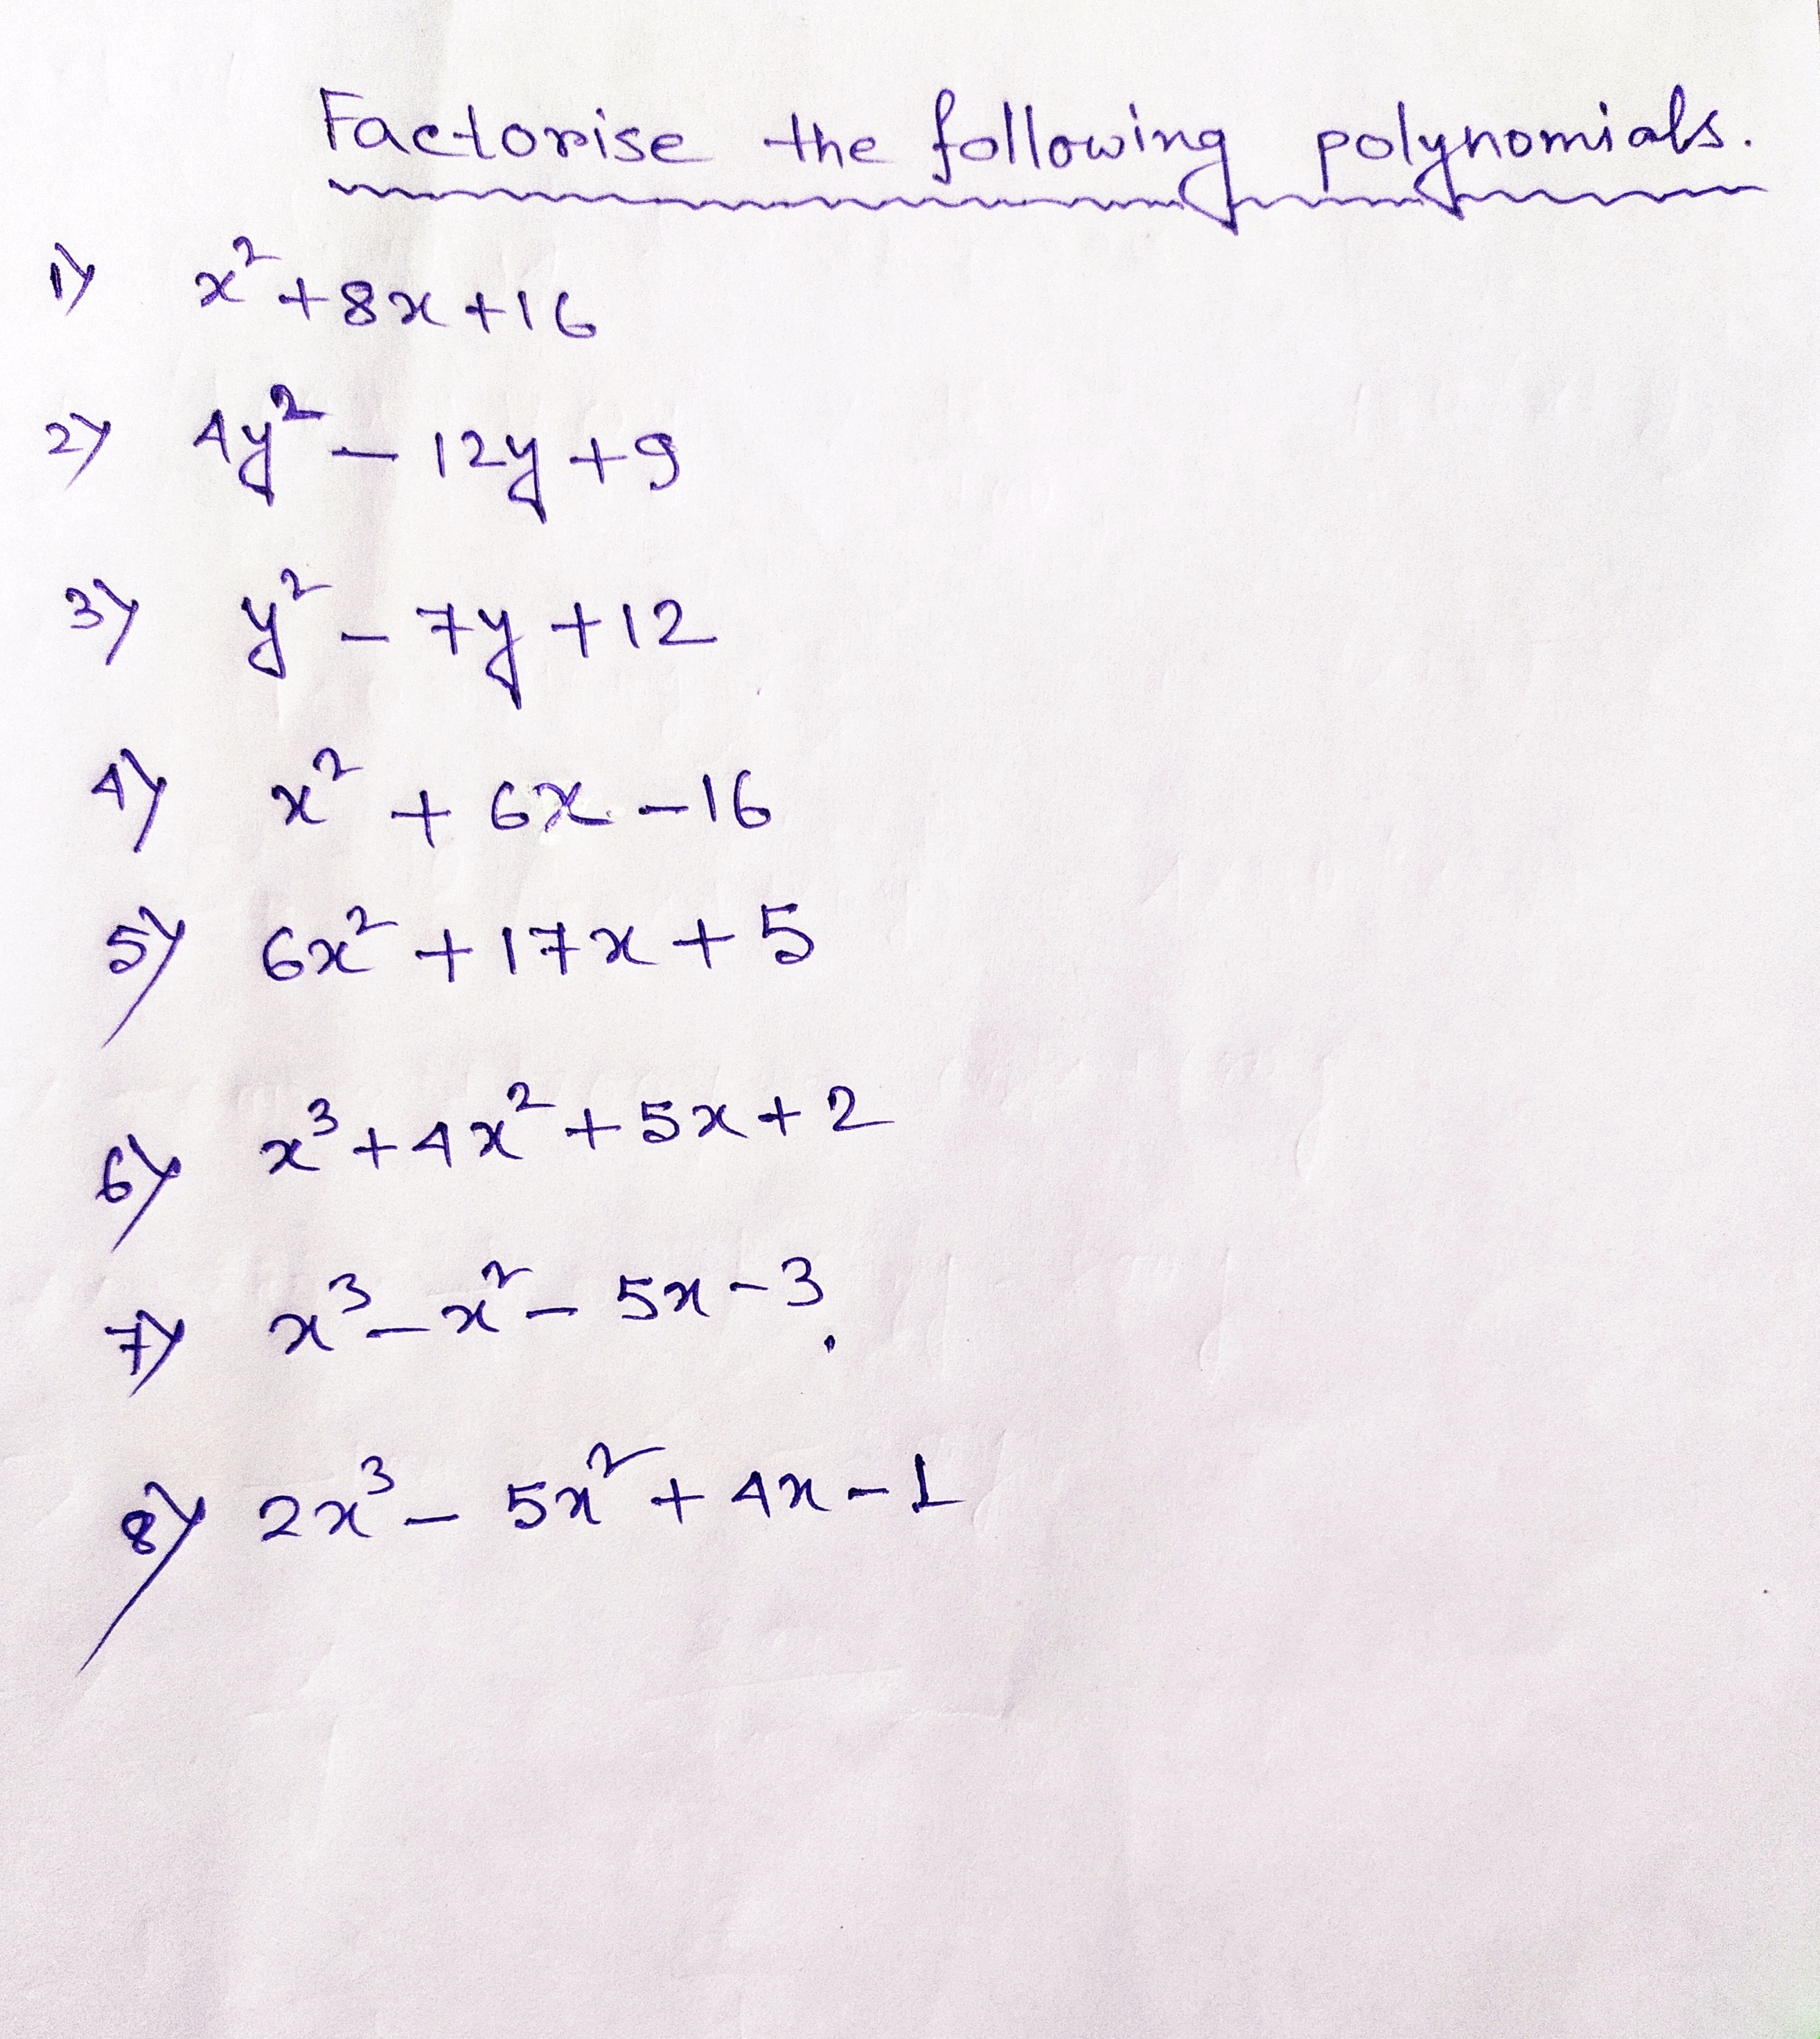 Factorise the following polynomials.
1) x² + 8x + 16
2) 4y² - 12y + 9
3) y² - 7y + 12
4) x² + 6x - 16
5) 6x² + 17x + 5
6) x³ + 4x² + 5x + 2
7) x³ - x² - 5x - 3.
8) 2x³ - 5x² + 4x - 1